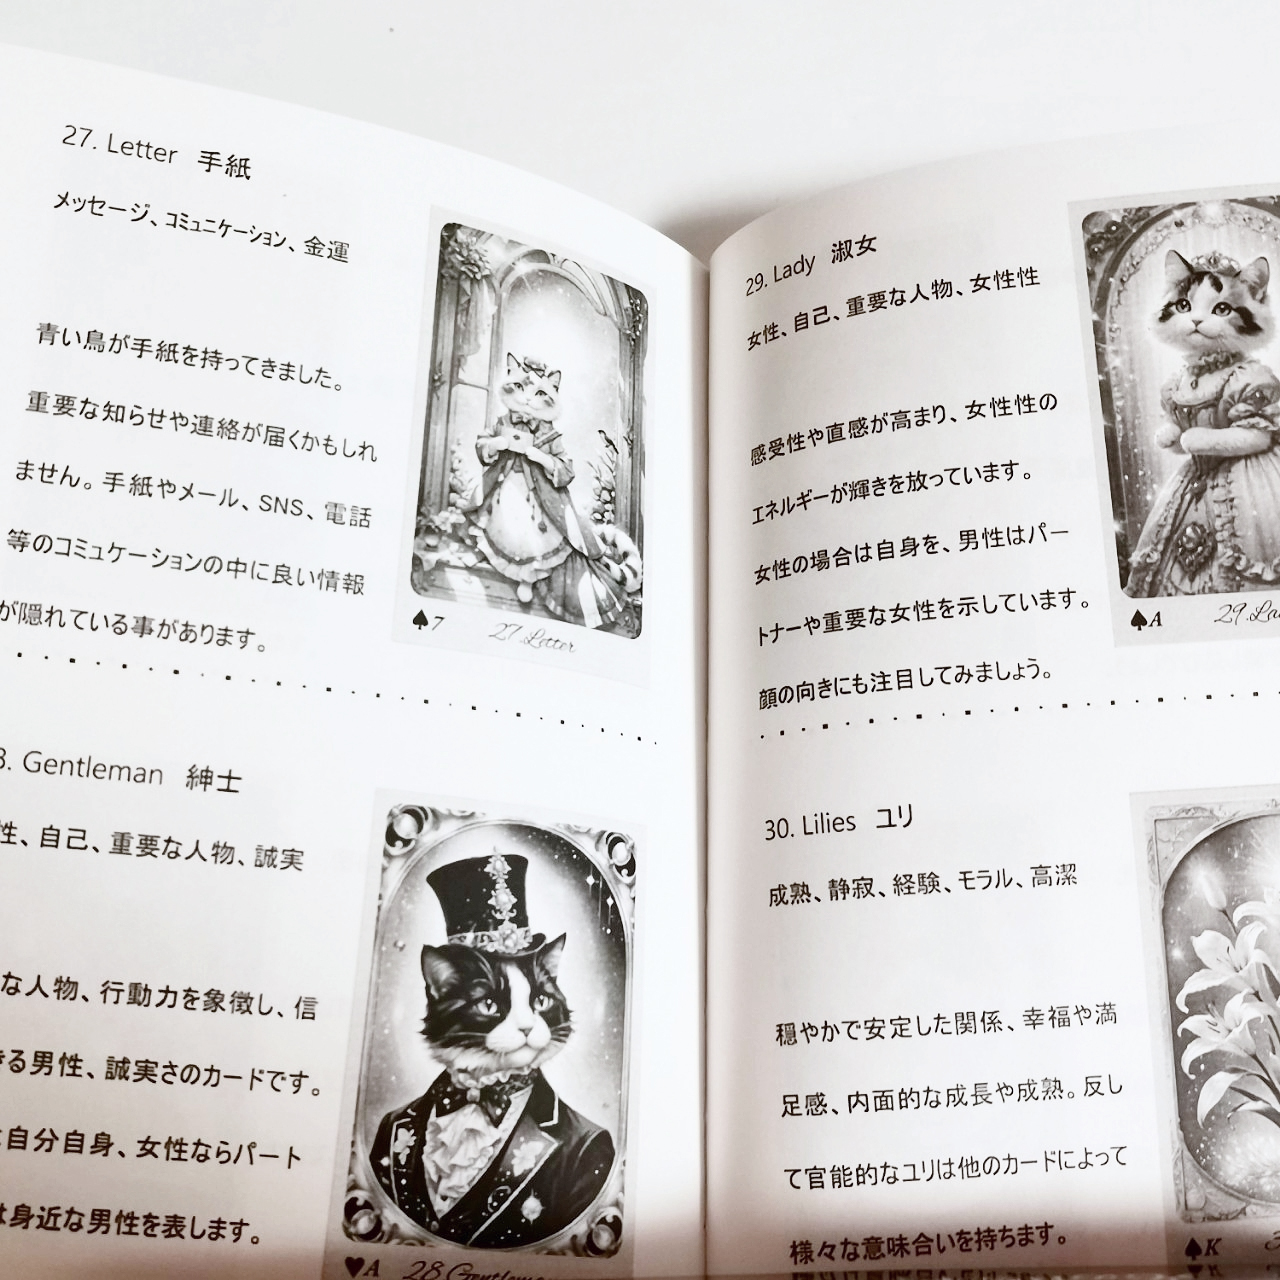 27. Letter 手紙
メッセージ、コミュニケーション、金運
青い鳥が手紙を持ってきました。
重要な知らせや連絡が届くかもしれ
ません。手紙やメール、SNS、電話
等のコミュケーションの中に良い情報
が隠れている事があります。
♠7 27.Letter
8. Gentleman 紳士
性、自己、重要な人物、誠実
な人物、行動力を象徴し、信
きる男性、誠実さのカードです。
自分自身、女性ならパート
は身近な男性を表します。
♥A 28.Gentleman
29. Lady 淑女
女性、自己、重要な人物、女性性
感受性や直感が高まり、女性性の
エネルギーが輝きを放っています。
女性の場合は自身を、男性はパー
トナーや重要な女性を示しています。
顔の向きにも注目してみましょう。
♠A 29.La
30. Lilies ユリ
成熟、静寂、経験、モラル、高潔
穏やかで安定した関係、幸福や満
足感、内面的な成長や成熟。反し
て官能的なユリは他のカードによって
様々な意味合いを持ちます。
♠K 3